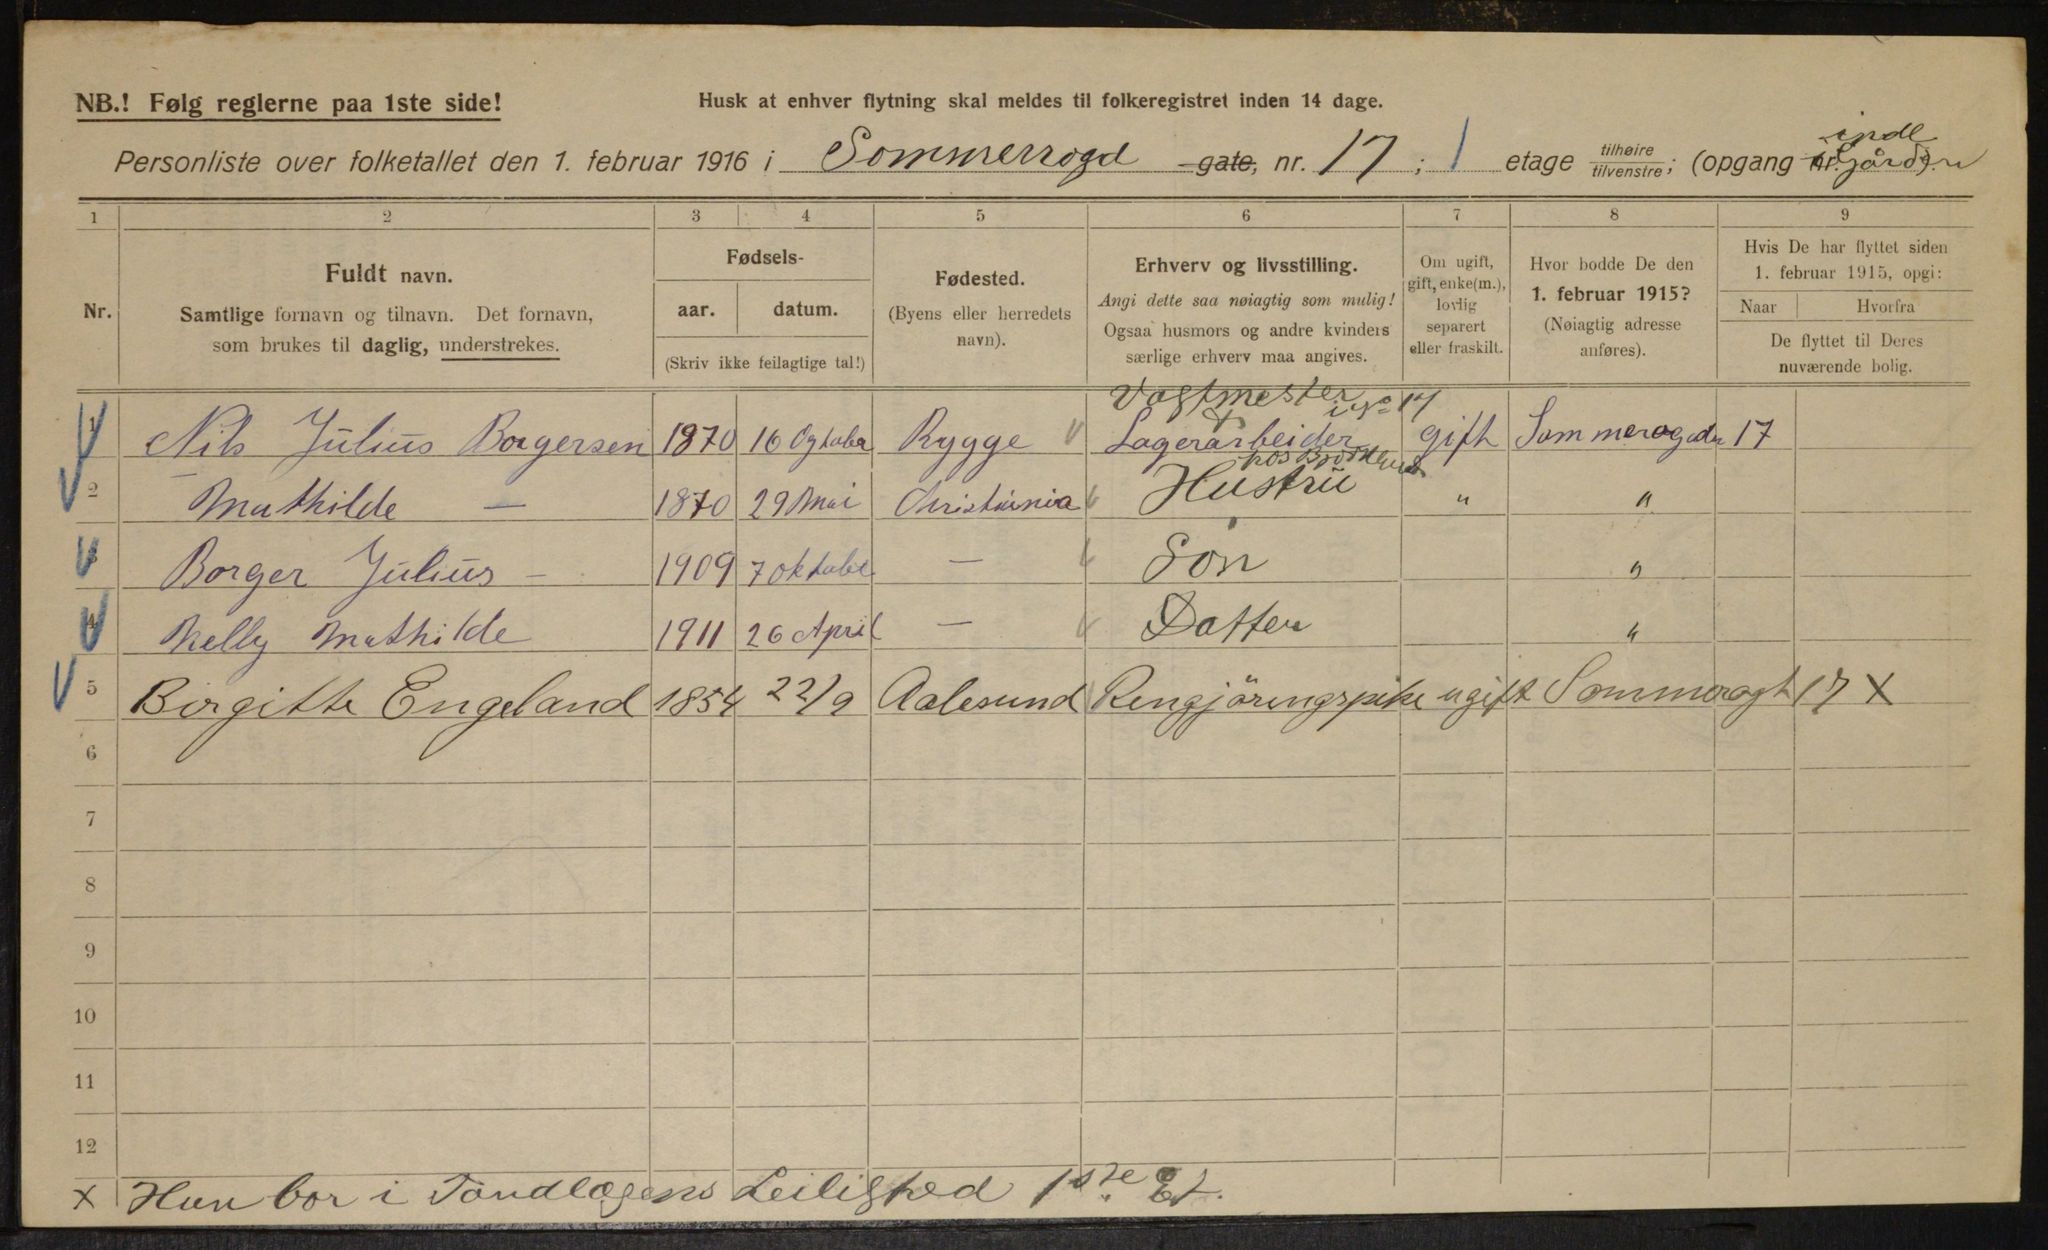 NB.! Følg reglerne paa 1ste side!
Husk at enhver flytning skal meldes til folkeregistret inden 14 dage.
Personliste over folketallet den 1. februar 1916 i Sommerrogd gate, nr. 17; 1 etage tilhøire tilvenstre; (opgang nr. inde i Gården).
1 2 3 4 5 6 7 8 9
Nr.
Fuldt navn.
Samtlige fornavn og tilnavn. Det fornavn,
som brukes til daglig, understrekes.
Fødsels-
aar. datum.
(Skriv ikke feilagtige tal!)
Fødested.
(Byens eller herredets
navn).
Erhverv og livsstilling.
Angi dette saa nøiagtig som mulig!
Ogsaa husmors og andre kvinders
særlige erhverv maa angives.
Om ugift,
gift, enke(m.),
lovlig
separert
eller fraskilt.
Hvor bodde De den
1. februar 1915?
(Nøiagtig adresse
anføres).
Hvis De har flyttet siden
1. februar 1915, opgi:
Naar Hvorfra
De flyttet til Deres
nuværende bolig.
Vagtmester
i No 17
1 Nils Julius Borgersen 1870 16 Ogtober Rygge Lagerarbeider gift Sommerogaden 17
hos
2 Mathilde — 1870 29 Mai Christiania Hustru " "
3 Borger Julius — 1909 7 oktober — Søn "
4 Nelly Mathilde 1911 26 April — Datter "
5 Birgitte Engeland 1854 22/9 Aalesund Rengjöringspike ugift Sommerogt 17 X
6
7
8
9
10
11
12
X Hun bor i Tandlægens Leilighed 1ste Et.